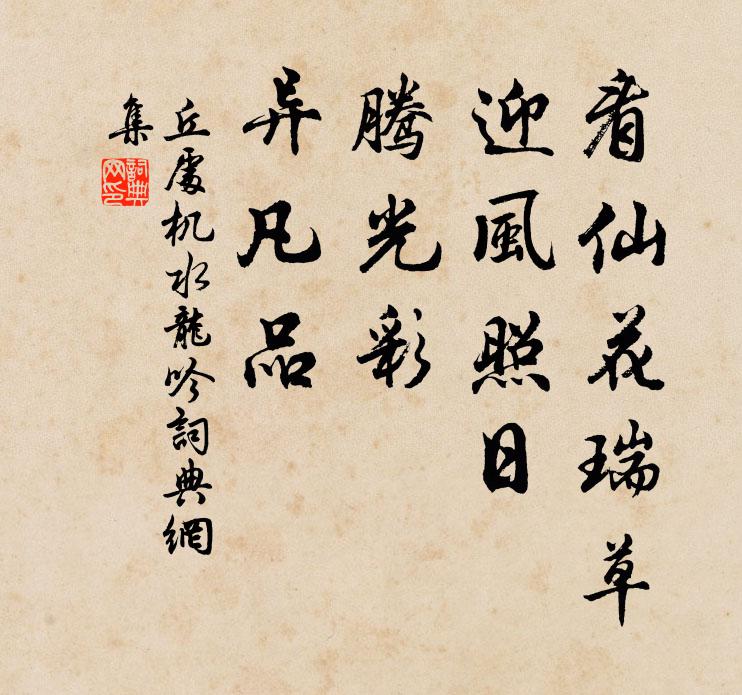 看仙花瑞草
迎風照日
騰光彩
异凡品
丘處机水龍吟詞典網
集
詞典
网印